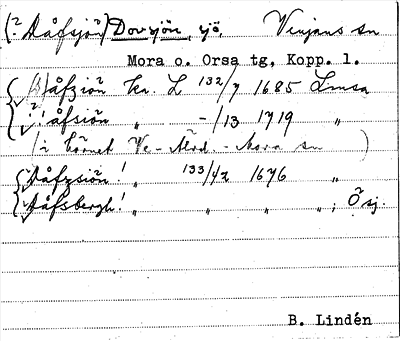 (? Dåfsjön) Dovsjön, sjö, Venjans sn
Mora o. Orsa tg, Kopp. l.
åfziön kn. L 132/7 1685 Lmsa
åfsiön „ -/13 1719 „
(i hörnet Ve - - Mora sn )
Dåfzsiön! „ 133/42 1676 „
Dåfsbergh! „ „ „ „; Ösj.
B. Lindén